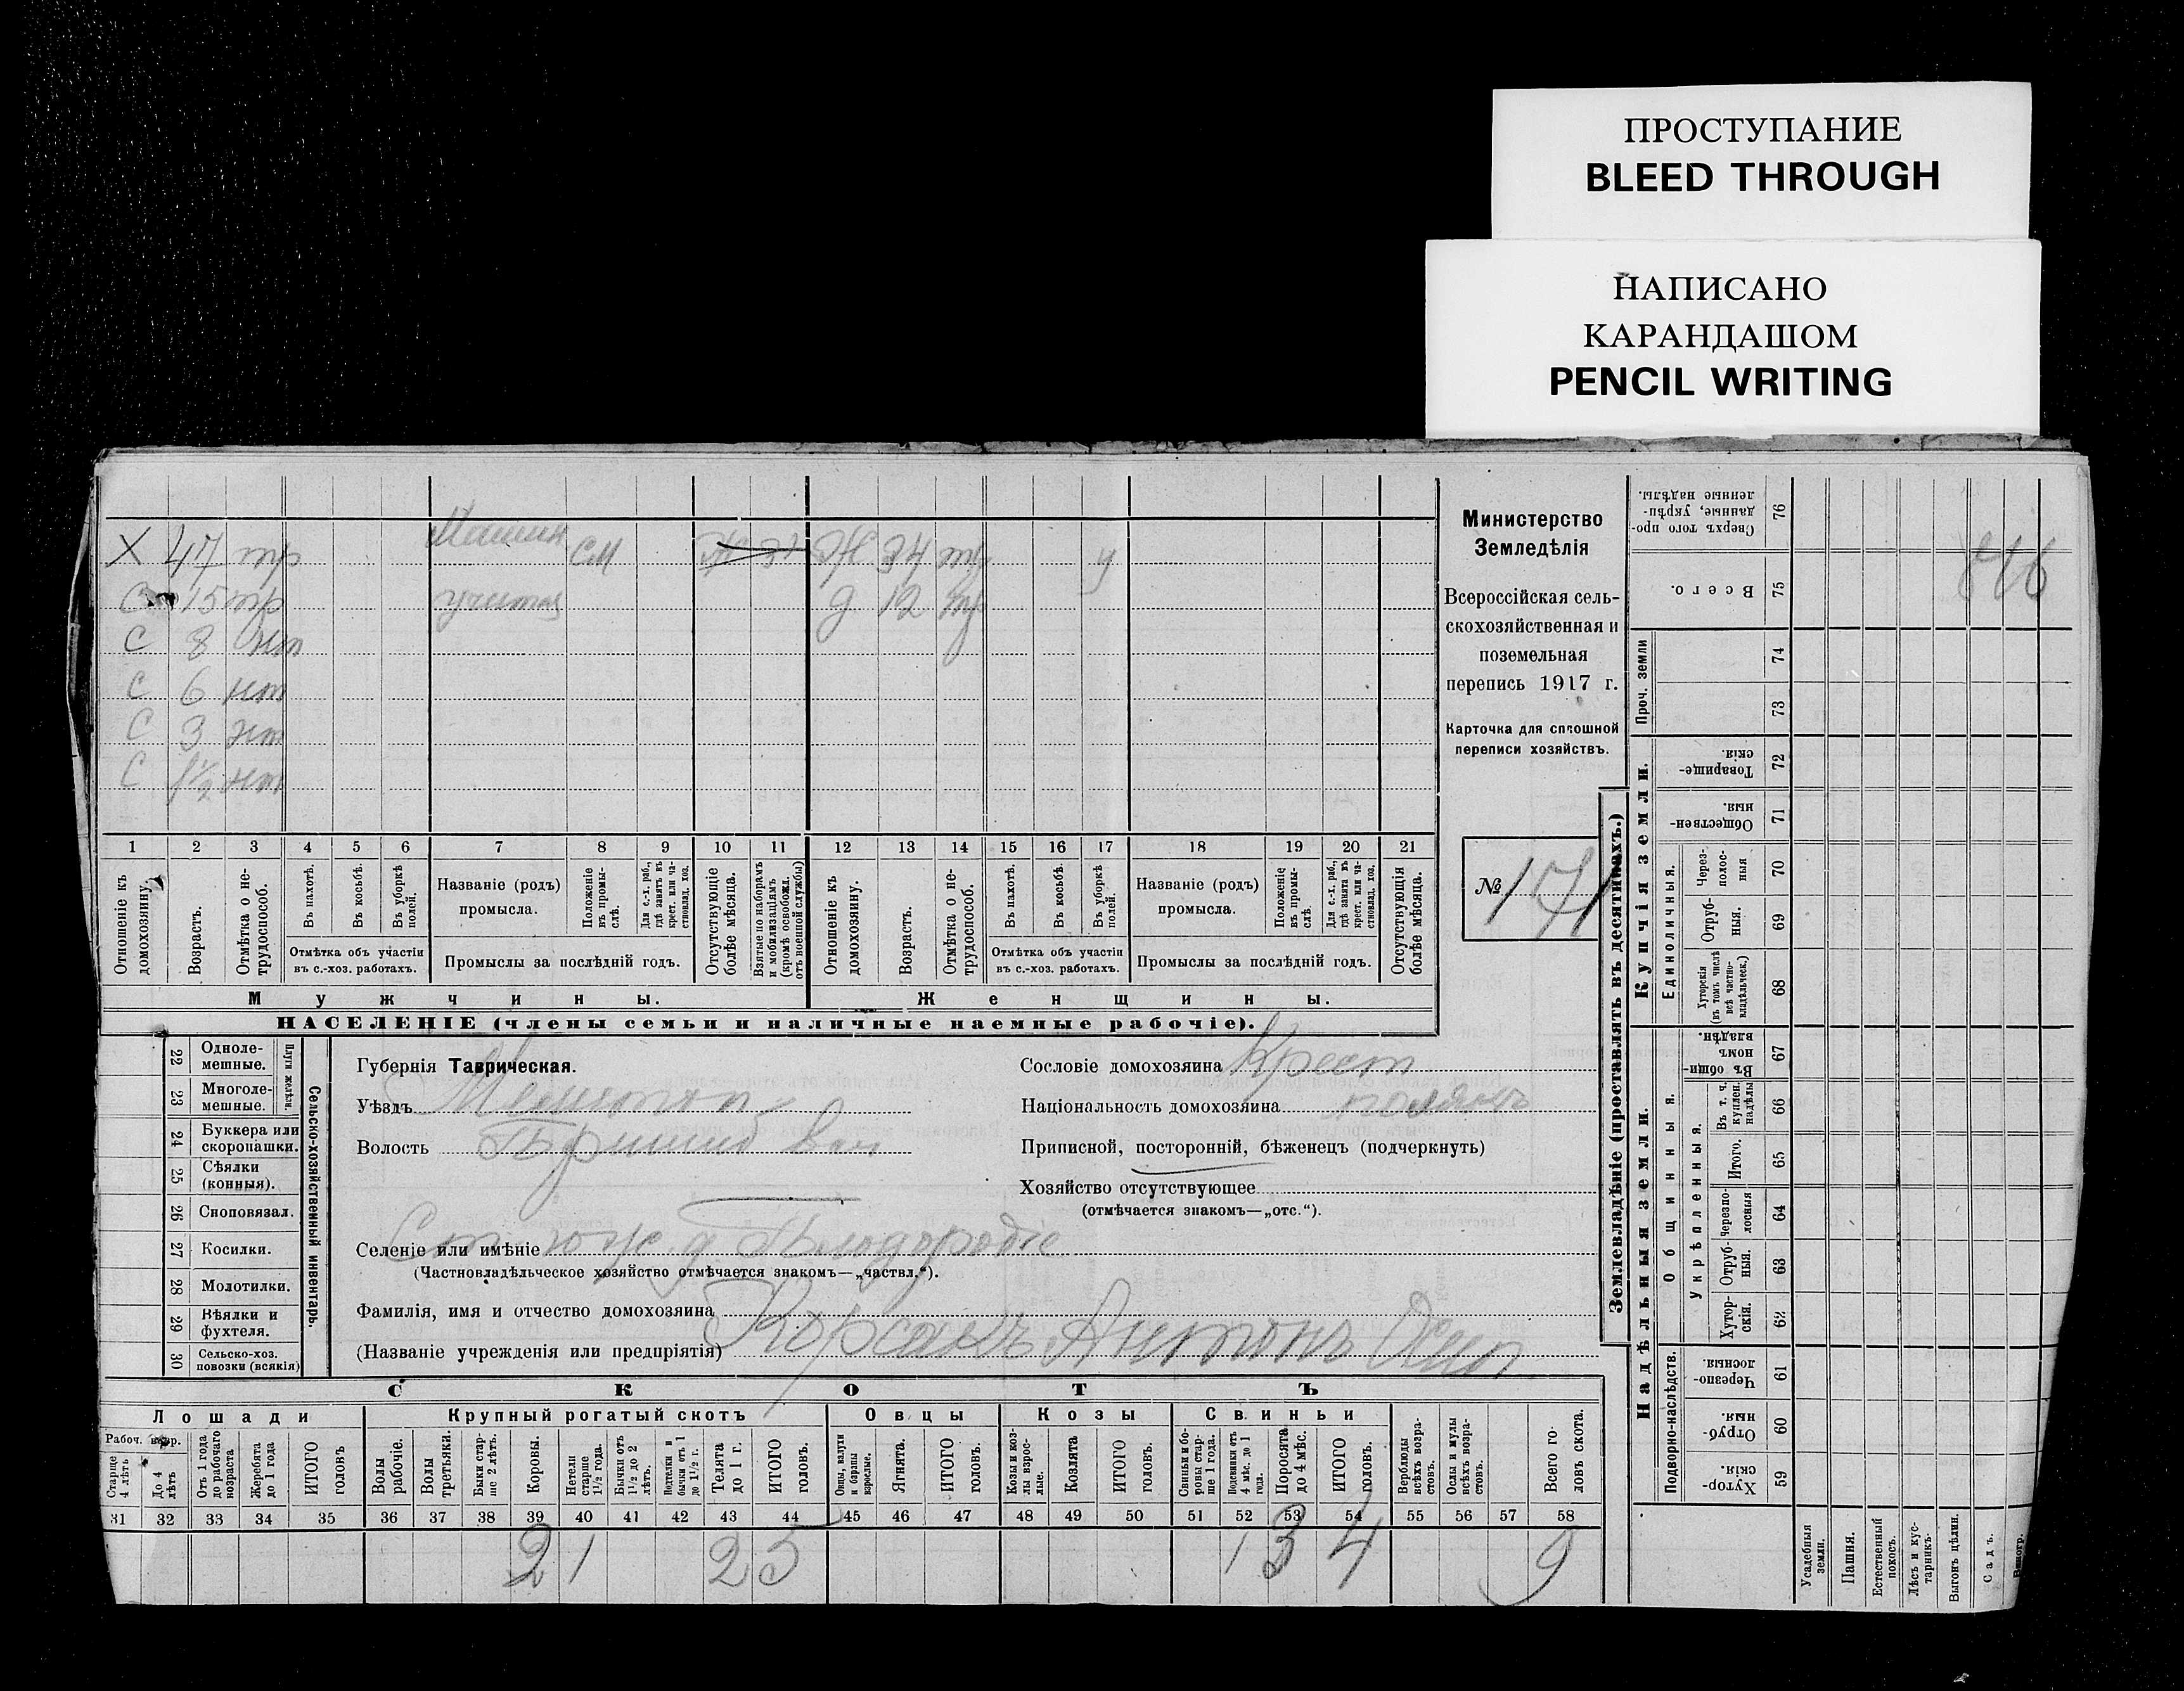 ПРОСТУПАНИЕ
BLEED THROUGH
НАПИСАНО
КАРАНДАШОМ
PENCIL WRITING
Х 47 тр Машин СМ Ж 34 Ж 34 тр у
С 15 тр учитель д 12 тр
С 8 нт
С 6 нт
С 3 нт
С 1½ нт
1 2 3 4 5 6 7 8 9 10 11 12 13 14 15 16 17 18 19 20 21
Отношеніе къ домохозяину.
Возрастъ.
Отмѣтка о нетрудоспособ.
Въ пахотѣ.
Въ косьбѣ.
Въ уборкѣ полей.
Отмѣтка объ участіи
въ с.-хоз. работахъ.
Названіе (родъ)
промысла.
Положеніе въ промыслѣ.
Для с.-х. раб., гдѣ занятъ въ крест. или частновлад. хоз.
Промыслы за послѣдній годъ.
Отсутствующіе болѣе мѣсяца.
Взятые по наборамъ и мобилизаціямъ (кромѣ освобожд. отъ военной службы)
Отношеніе къ домохозяину.
Возрастъ.
Отмѣтка о нетрудоспособ.
Въ пахотѣ.
Въ косьбѣ.
Въ уборкѣ полей.
Отмѣтка объ участіи
въ с.-хоз. работахъ.
Названіе (родъ)
промысла.
Положеніе въ промыслѣ.
Для с.-х. раб., гдѣ занята въ крест. или частновлад. хоз.
Промыслы за послѣдній годъ.
Отсутствующія болѣе мѣсяца.
Мужчины. Женщины.
НАСЕЛЕНІЕ (члены семьи и наличные наемные рабочіе).
Министерство
Земледѣлія
Всероссійская сель-
скохозяйственная и
поземельная
перепись 1917 г.
Карточка для сплошной
переписи хозяйствъ.
№ 171
22 Одноле-
мешные.
23 Многоле-
мешные.
Плуги желѣзн.
24 Буккера или
скоропашки.
25 Сѣялки
(конныя).
26 Сноповязал.
27 Косилки.
28 Молотилки.
29 Вѣялки и
фухтеля.
30 Сельско-хоз.
повозки (всякія)
Сельско-хозяйственный инвентарь.
Губернія Таврическая.
Уѣздъ Мелитоп
Волость
Селеніе или имѣніе Ст. юж. д. Плодородіе
(Частновладѣльческое хозяйство отмѣчается знакомъ—„частвл.“).
Фамилія, имя и отчество домохозяина
(Названіе учрежденія или предпріятія) Корсакъ Антонъ Осип
Сословіе домохозяина Крест
Національность домохозяина полякъ
Приписной, посторонній, бѣженецъ (подчеркнуть)
Хозяйство отсутствующее
(отмѣчается знакомъ—„отс.“).
СКОТЪ
Лошади Крупный рогатый скотъ Овцы Козы Свиньи
Рабоч. возр.
Старше 4 лѣтъ
До 4 лѣтъ
Отъ 1 года до рабочаго возраста
Жеребята до 1 года
ИТОГО головъ
Волы рабочіе.
Волы третьяки.
Быки старше 2 лѣтъ.
Коровы.
Нетели старше 1½ года.
Бычки отъ 1½ до 2 лѣтъ.
Подтелки и бычки отъ 1 до 1½ г.
Телята до 1 г.
ИТОГО головъ.
Овцы, валухи и бараны взрослые.
Ягнята.
ИТОГО головъ.
Козы и козлы взрослые.
Козлята
ИТОГО головъ.
Свиньи и боровы старше 1 года.
Подсвинки отъ 4 мѣс. до 1 года.
Поросята до 4 мѣс.
ИТОГО головъ.
Верблюды всѣхъ возрастовъ.
Ослы и мулы всѣхъ возрастовъ.
Всего головъ скота.
31 32 33 34 35 36 37 38 39 40 41 42 43 44 45 46 47 48 49 50 51 52 53 54 55 56 57 58
2 1 2 5 1 3 4 9
Землевладѣніе (проставлять въ десятинахъ.)
Сверхъ того проданные, укрѣпленные надѣлы. 76
Всего. 75
Проч. земли 74
73
Купчія земли.
Товарищескія. 72
Общественныя. 71
Единоличныя.
Черезполосныя 70
Отрубныя. 69
Хуторскія (въ томъ числѣ всѣ частновладѣльческ.) 68
Надѣльныя земли.
Общинныя.
Въ общинномъ владѣн. 67
Укрѣпленныя.
Въ т. ч. куплен. надѣлы 66
Итого. 65
Черезполосныя 64
Отрубныя. 63
Хуторскія. 62
Подворно-наслѣдств.
Черезполосныя. 61
Отрубныя. 60
Хуторскія. 59
Усадебныя земли.
Пашня.
Естественный покосъ.
Лѣсъ и кустарникъ.
Выгонъ цѣлин.
Садъ.